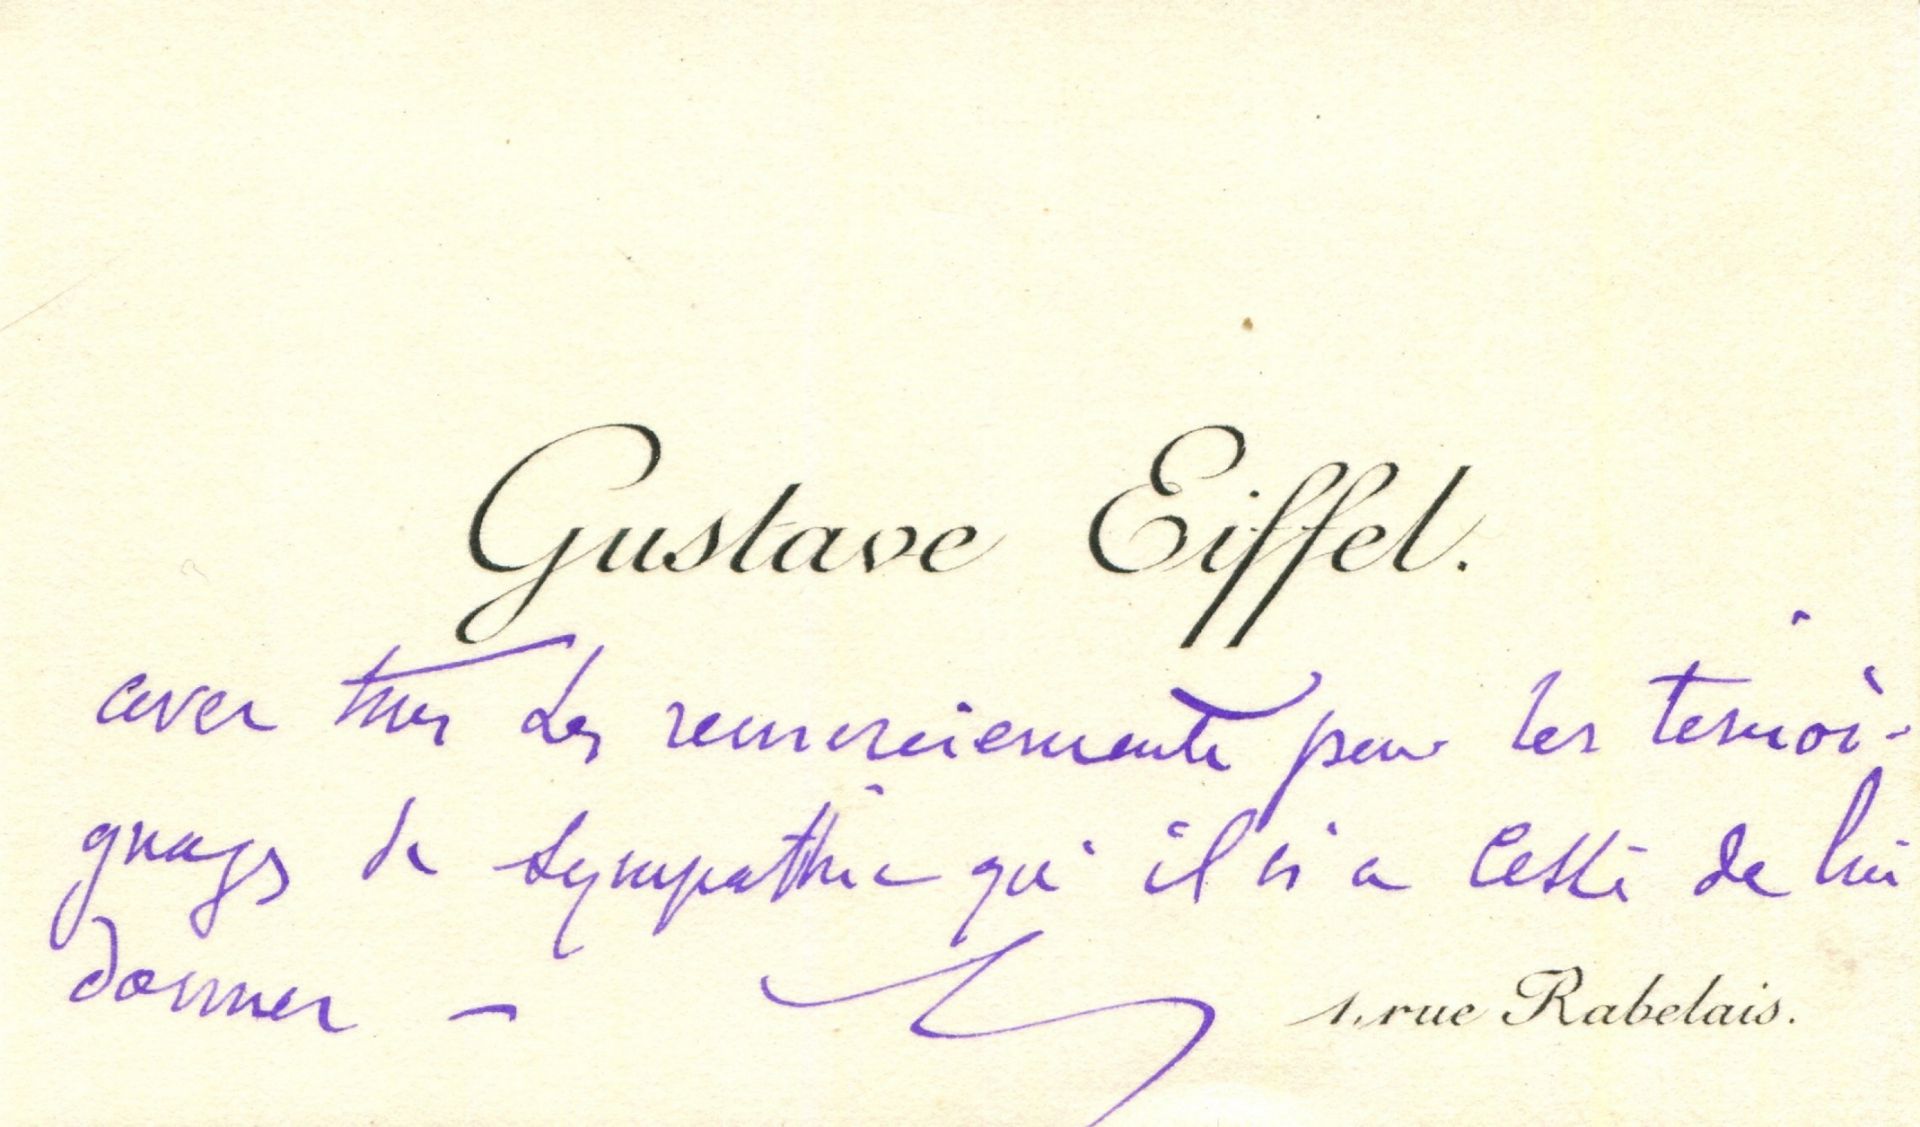 Gustave Eiffel.
avec tous ses remerciements pour les témoi-
gnages de sympathie qu'il n'a cessé de lui
donner —
1, rue Rabelais.